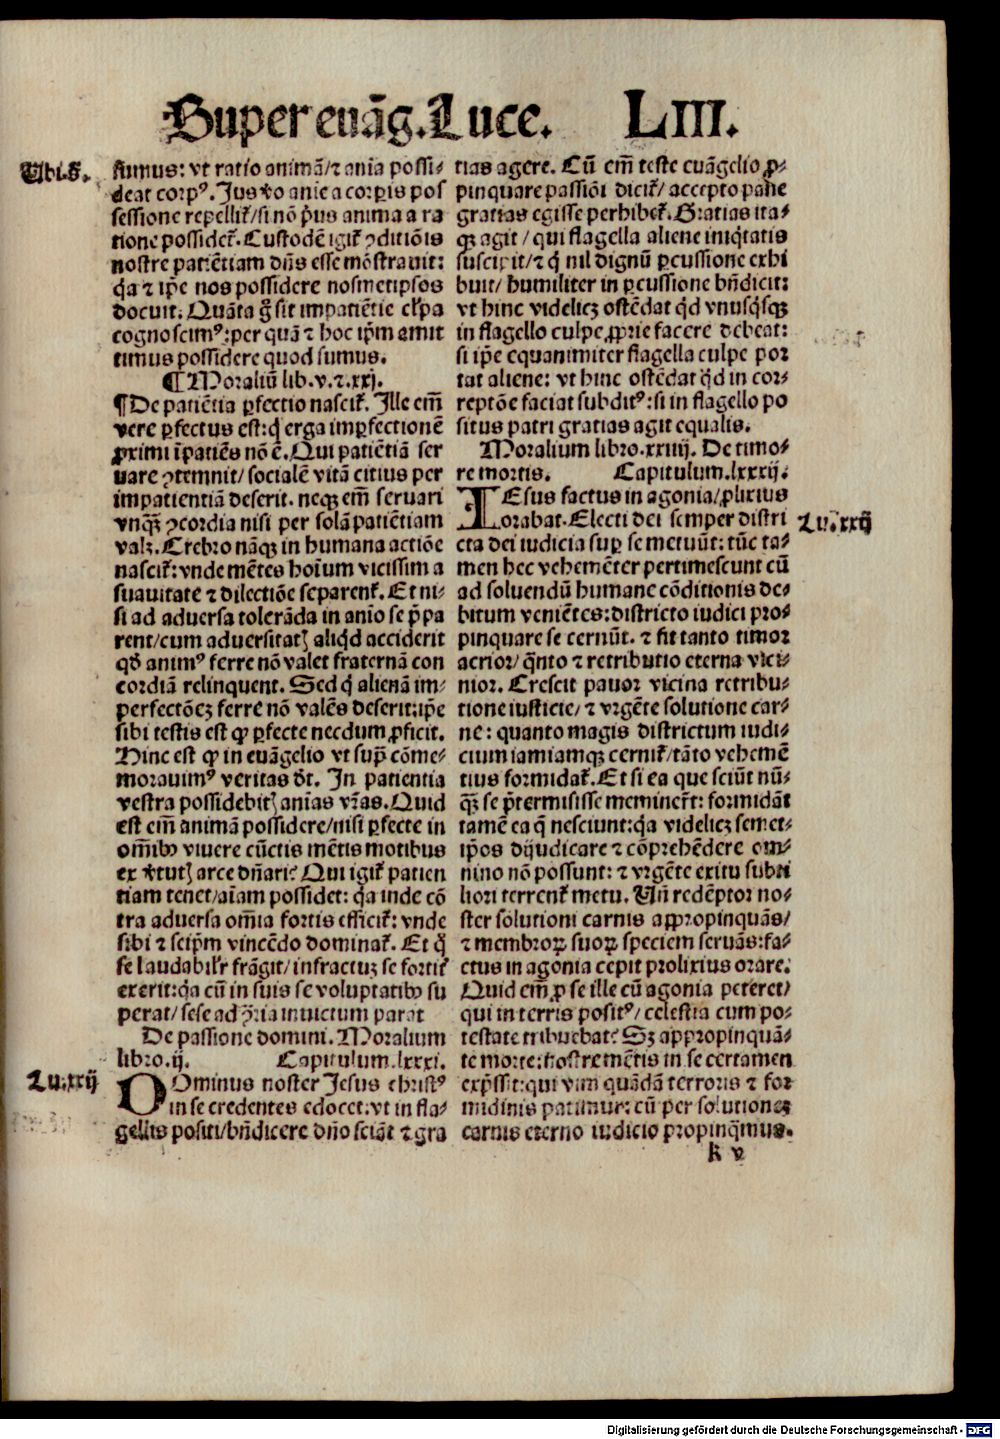 Super euāg. Luce. LIII.
Ubi.s̄.
sumus: vt ratio animā/ ⁊ aīa possi⸗
deat corpꝰ. Jus v̄o anīe a corꝑis pos
sessione repellit᷑/ si nō p̄us anima a ra
tione possidet᷑. Custodē igit᷑ ꝯditiōis
nostre patiētiam dn̄s esse mōstrauit:
q̄a ⁊ ip̄e nos possidere nosmetipsos
docuit. Quāta g̊ sit impatiētie cl̓pa
cognoscimꝰ: per quā ⁊ hoc ip̄m amit
timus possidere quod sumus.
¶ Moraliū lib. v. ⁊. xxj.
¶ De patiētia ꝑfectio nascit᷑. Ille em̄
vere ꝑfectus est: q̄ erga imꝑfectionē
ꝓximi īpatiēs nō ē. Qui patiētiā ser
uare ꝯtemnit/ socialē vitā citius per
impatientiā deserit. neqꝫ em̄ seruari
vnqꝫ̄ ꝯcordia nisi per solā patiētiam
valꝫ. Crebro nāqꝫ in humana actiōe
nascit᷑: vnde mētes hoīum vicissim a
suauitate ⁊ dilectiōe separent᷑. Et ni⸗
si ad aduersa tolerāda in anīo se p̄pa
rent/ cum aduersitatꝭ aliq̄d acciderit
qđ animꝰ ferre nō valet fraternā con
cordiā relinquent. Sed q̄ alienā im⸗
perfectōeꝫ ferre nō valēs deserit: ip̄e
sibi testis est ꝙ ꝑfecte necdum ꝓficit.
Hinc est ꝙ in euāgelio vt supͣ cōme⸗
morauimꝰ veritas đt. In patientia
vestra possidebitꝭ anīas vr̄as. Quid
est em̄ animā possidere/ nisi ꝑfecte in
om̄ibꝰ viuere cūctis mētis motibus
ex v̄tutꝭ arce dn̄ari? Qui igit᷑ patien
tiam tenet/ aīam possidet: q̄a inde cō
tra aduersa om̄ia fortis efficit᷑: vnde
sibi ⁊ seip̄m vincēdo dominat᷑. Et q̄
se laudabilr̄ frāgit/ infractuꝫ se fortit᷑
exerit: q̄a cū in suis se voluptatibꝰ su
perat/ sese ad ꝯͬria inuictum parat
De passione domini. Moralium
libro. ij. Capitulum. lxxxi.
Lu. xxij
DOminus noster Jesus christꝰ
in se credentes edocet: vt in fla⸗
gellis positi/ bn̄dicere dn̄o sciāt ⁊ gra
tias agere. Cū em̄ teste euāgelio ꝓ⸗
pinquare passiōi dicit᷑/ accepto pane
gratias egisse perhibet᷑. Gratias ita⸗
qꝫ agit/ qui flagella aliene iniq̄tatis
suscipit/ ⁊ q̄ nil dignū ꝑcussione exhi
buit/ humiliter in ꝑcussione bn̄dicit:
vt hinc videlicꝫ ostēdat q̄d vnusq̄sqꝫ
in flagello culpe ꝓprie facere debeat:
si ip̄e equanimiter flagella culpe por
tat aliene: vt hinc ostēdat q̄d in cor⸗
reptōe faciat subditꝰ: si in flagello po
situs patri gratias agit equalis.
Moralium libro. xxiiij. De timo⸗
re mortis. Capitulum. lxxxij.
Lu. xxij
IEsus factus in agonia/ ꝓlixius
orabat. Electi dei semper distri
cta dei iudicia suꝑ se metuūt: tūc ta⸗
men hec vehemēter pertimescunt cū
ad soluendū humane cōditionis de⸗
bitum veniētes: districto iudici pro⸗
pinquare se cernūt. ⁊ fit tanto timor
acrior/ q̄nto ⁊ retributio eterna vici⸗
nior. Crescit pauor vicina retribu⸗
tione iusticie/ ⁊ vrgēte solutione car⸗
ne: quanto magis districtum iudi⸗
cium iamiamqꝫ cernit᷑/ tāto vehemē
tius formidat᷑. Et si ea que sciūt nū⸗
qꝫ̄ se p̄termisisse meminer̄t: formidāt
tamē ea q̄ nesciunt: q̄a videlicꝫ semet⸗
ip̄os dijudicare ⁊ cōprehēdere om⸗
nino nō possunt: ⁊ vrgēte exitu subti
liori terrent᷑ metu. Un̄ redēptor no⸗
ster solutioni carnis appropinquās/
⁊ membroꝝ suoꝝ speciem seruās: fa⸗
ctus in agonia cepit prolixius orare.
Quid em̄ ꝓ se ille cū agonia peteret/
qui in terris positꝰ/ celestia cum po⸗
testate tribuebat? Sꝫ appropinquā⸗
te morte: nostre mētis in se certamen
exp̄ssit: qui vim quādā terroris ⁊ for
midinis patimur: cū per solutioneꝫ
carnis eterno iudicio propinq̄mus.
k v
Digitalisierung gefördert durch die Deutsche Forschungsgemeinschaft - DFG